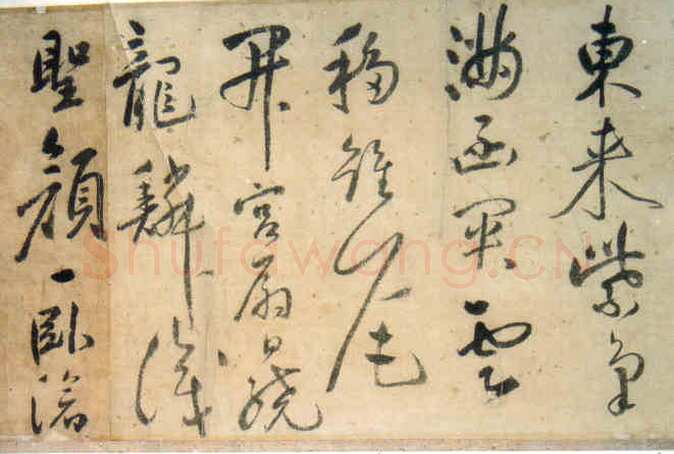 東来紫氣
滿函關雲
移雉尾
開宮扇日繞
龍鱗識
聖顔一臥滄
Shufawang.CN